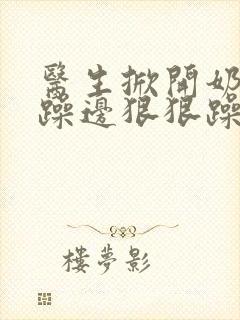 醫生掀開奶
躁邊狠狠躁
樓夢影